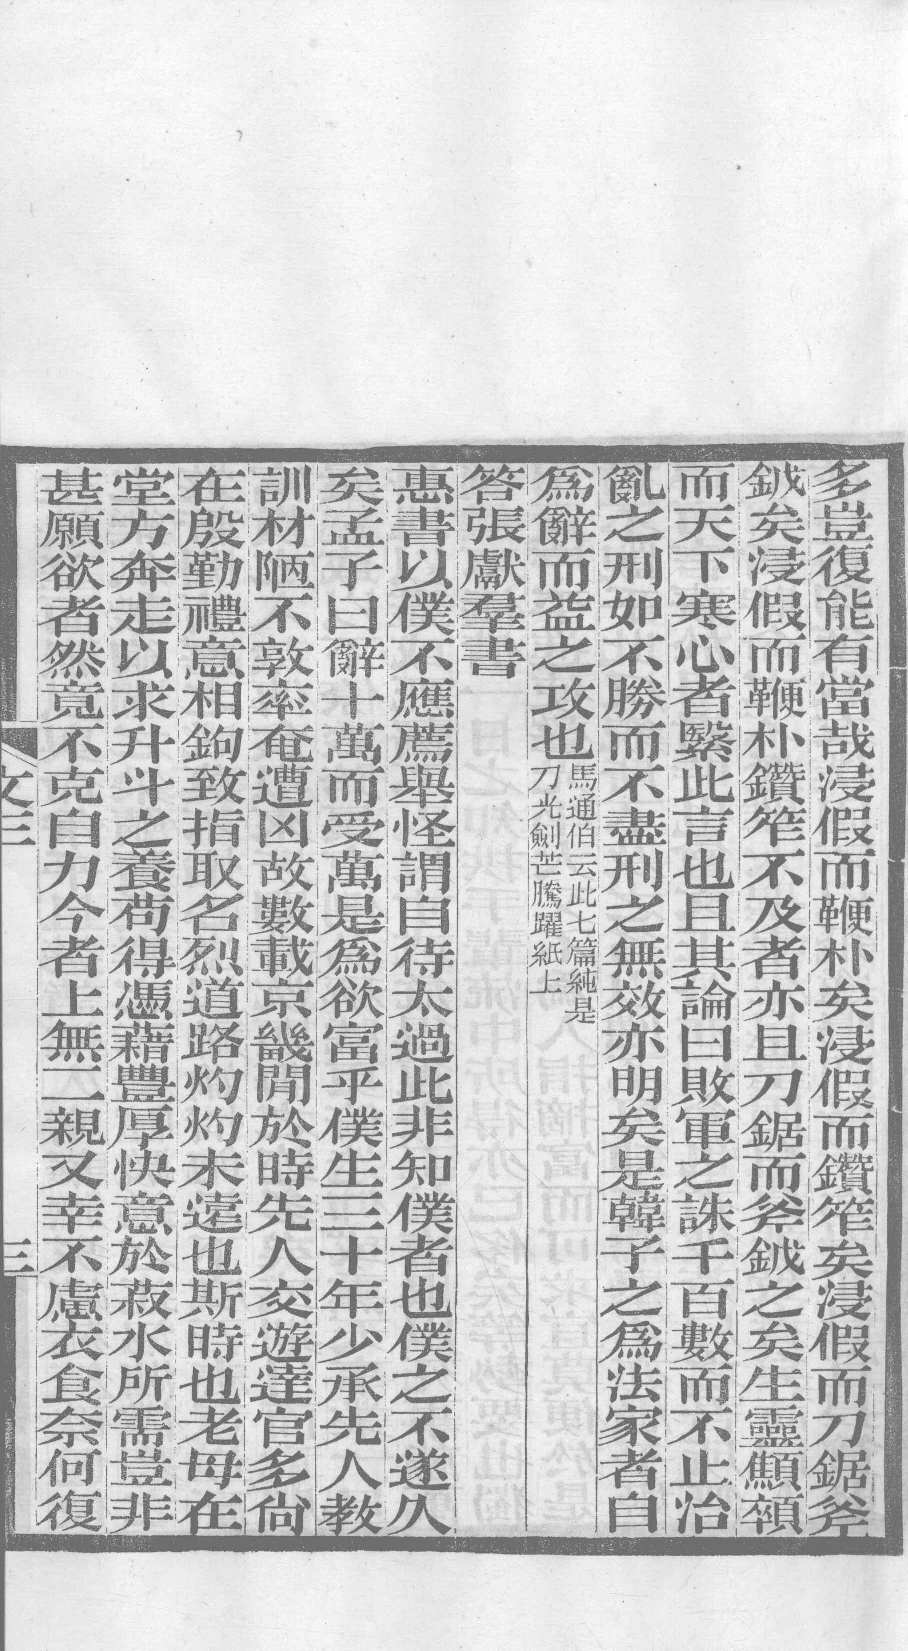 多豈復能有當哉浸假而鞭朴矣浸假而鑽笮矣浸假而刀鋸斧
鉞矣浸假而鞭朴鑽笮不及者亦且刀鋸而斧鉞之矣生靈顦顇
而天下寒心者繄此言也且其論曰敗軍之誅千百數而不止治
亂之刑如不勝而不盡刑之無效亦明矣是韓子之爲法家者自
爲辭而益之攻也馬通伯云此七篇純是刀光劍芒騰躍紙上
答張獻羣書
惠書以僕不應薦舉怪謂自待太過此非知僕者也僕之不遂久
矣孟子曰辭十萬而受萬是爲欲富乎僕生三十年少承先人教
訓材陋不敦率奄遭凶故數載京畿閒於時先人交遊達官多尙
在殷勤禮意相鉤致指取名烈道路灼灼未遠也斯時也老母在
堂方奔走以求升斗之養苟得憑藉豐厚快意於菽水所需豈非
甚願欲者然竟不克自力今者上無二親又幸不慮衣食奈何復
文三
三